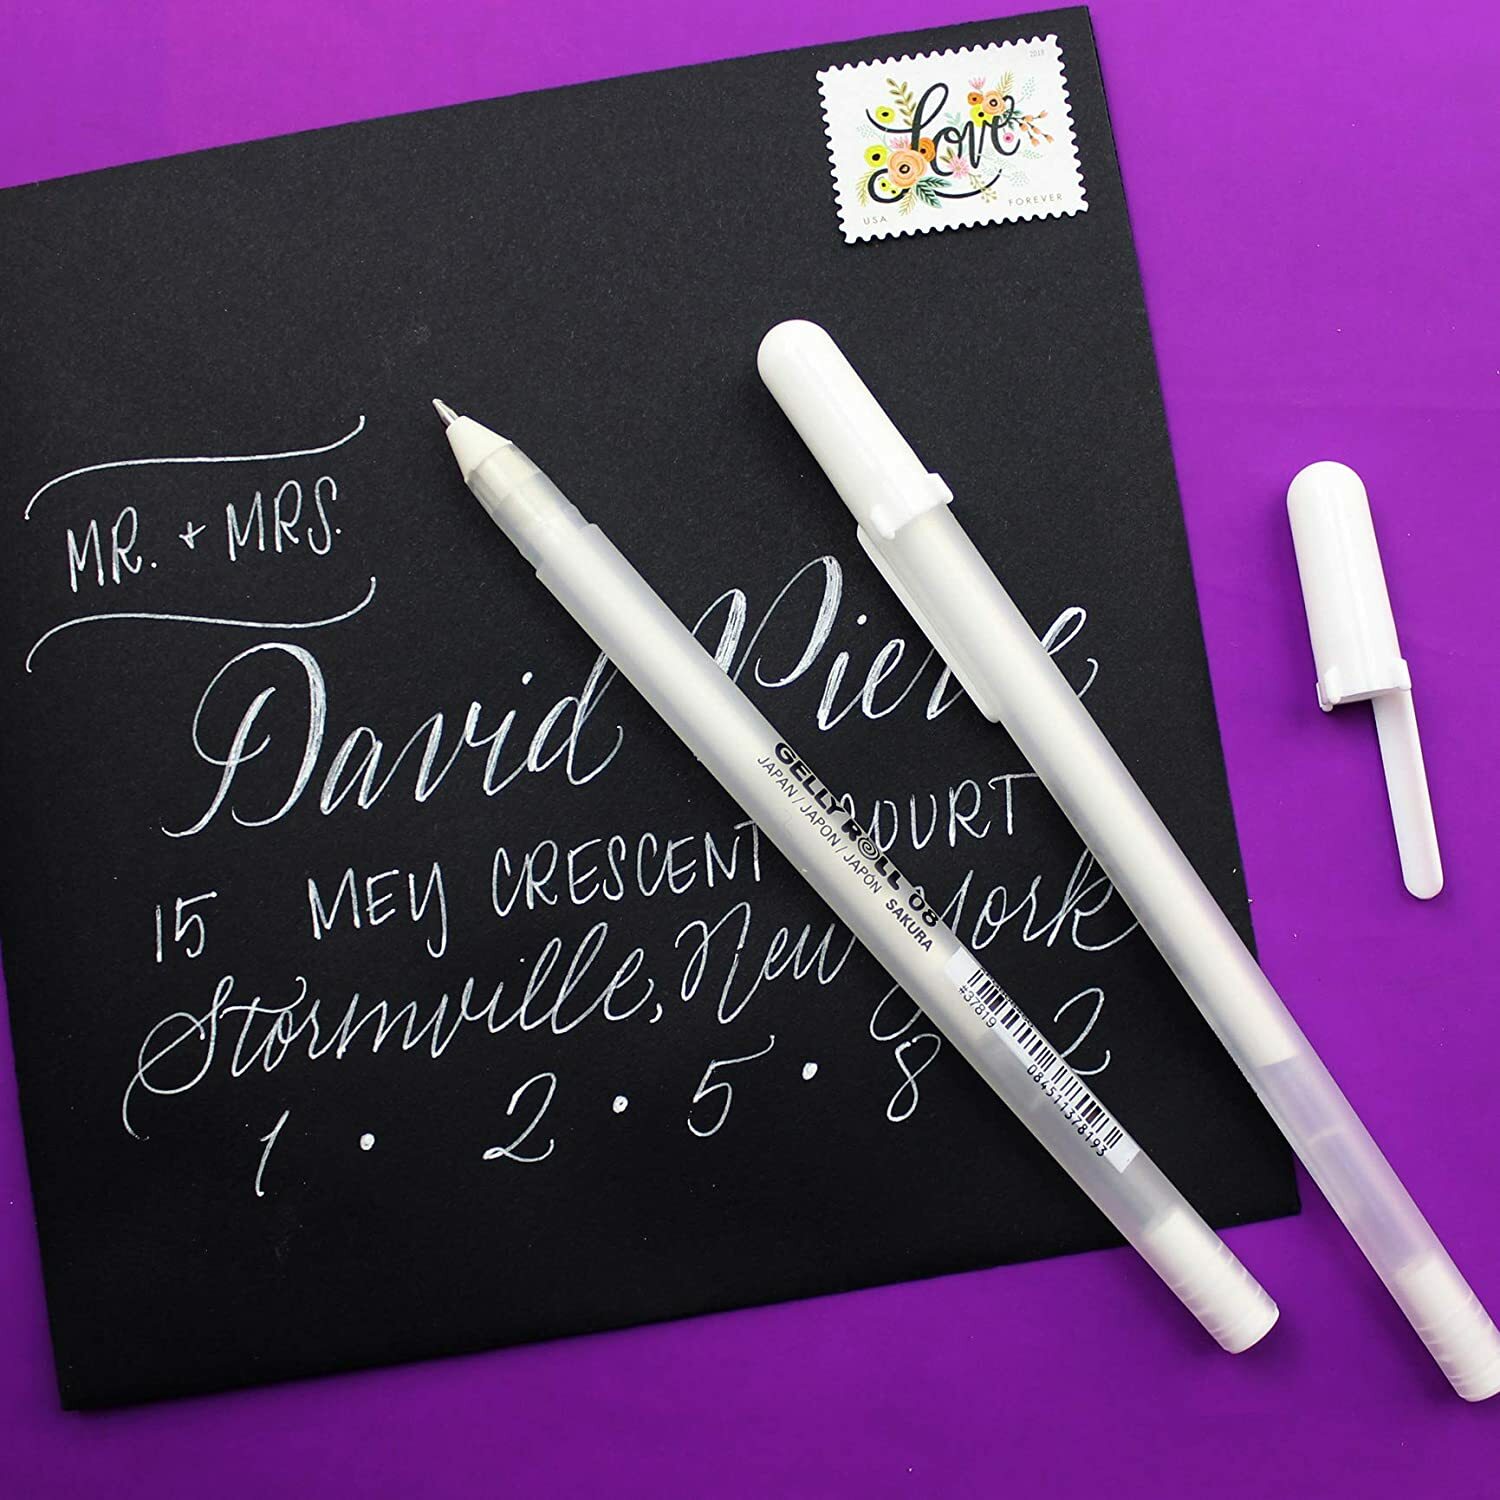 2018
Love
USA
FOREVER
MR. + MRS.
David
15 MEY CRESCENT COURT
Stormville, New York
1 · 2 · 5 · 8 2
GELLY ROLL 08
JAPAN / JAPON / JAPÓN SAKURA
#37819
084511378193